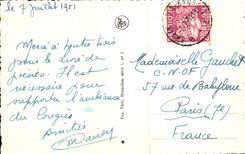 le 7 juillet 1951
Merci à toutes trois
pour le livre de
poésies. Il est
nécessaire pour
supporter l'ambiance
du Congrès.
Amitiés
Mademoiselle Gauchet
C.N.O.F
57 rue de Babylone
Paris (7e)
France